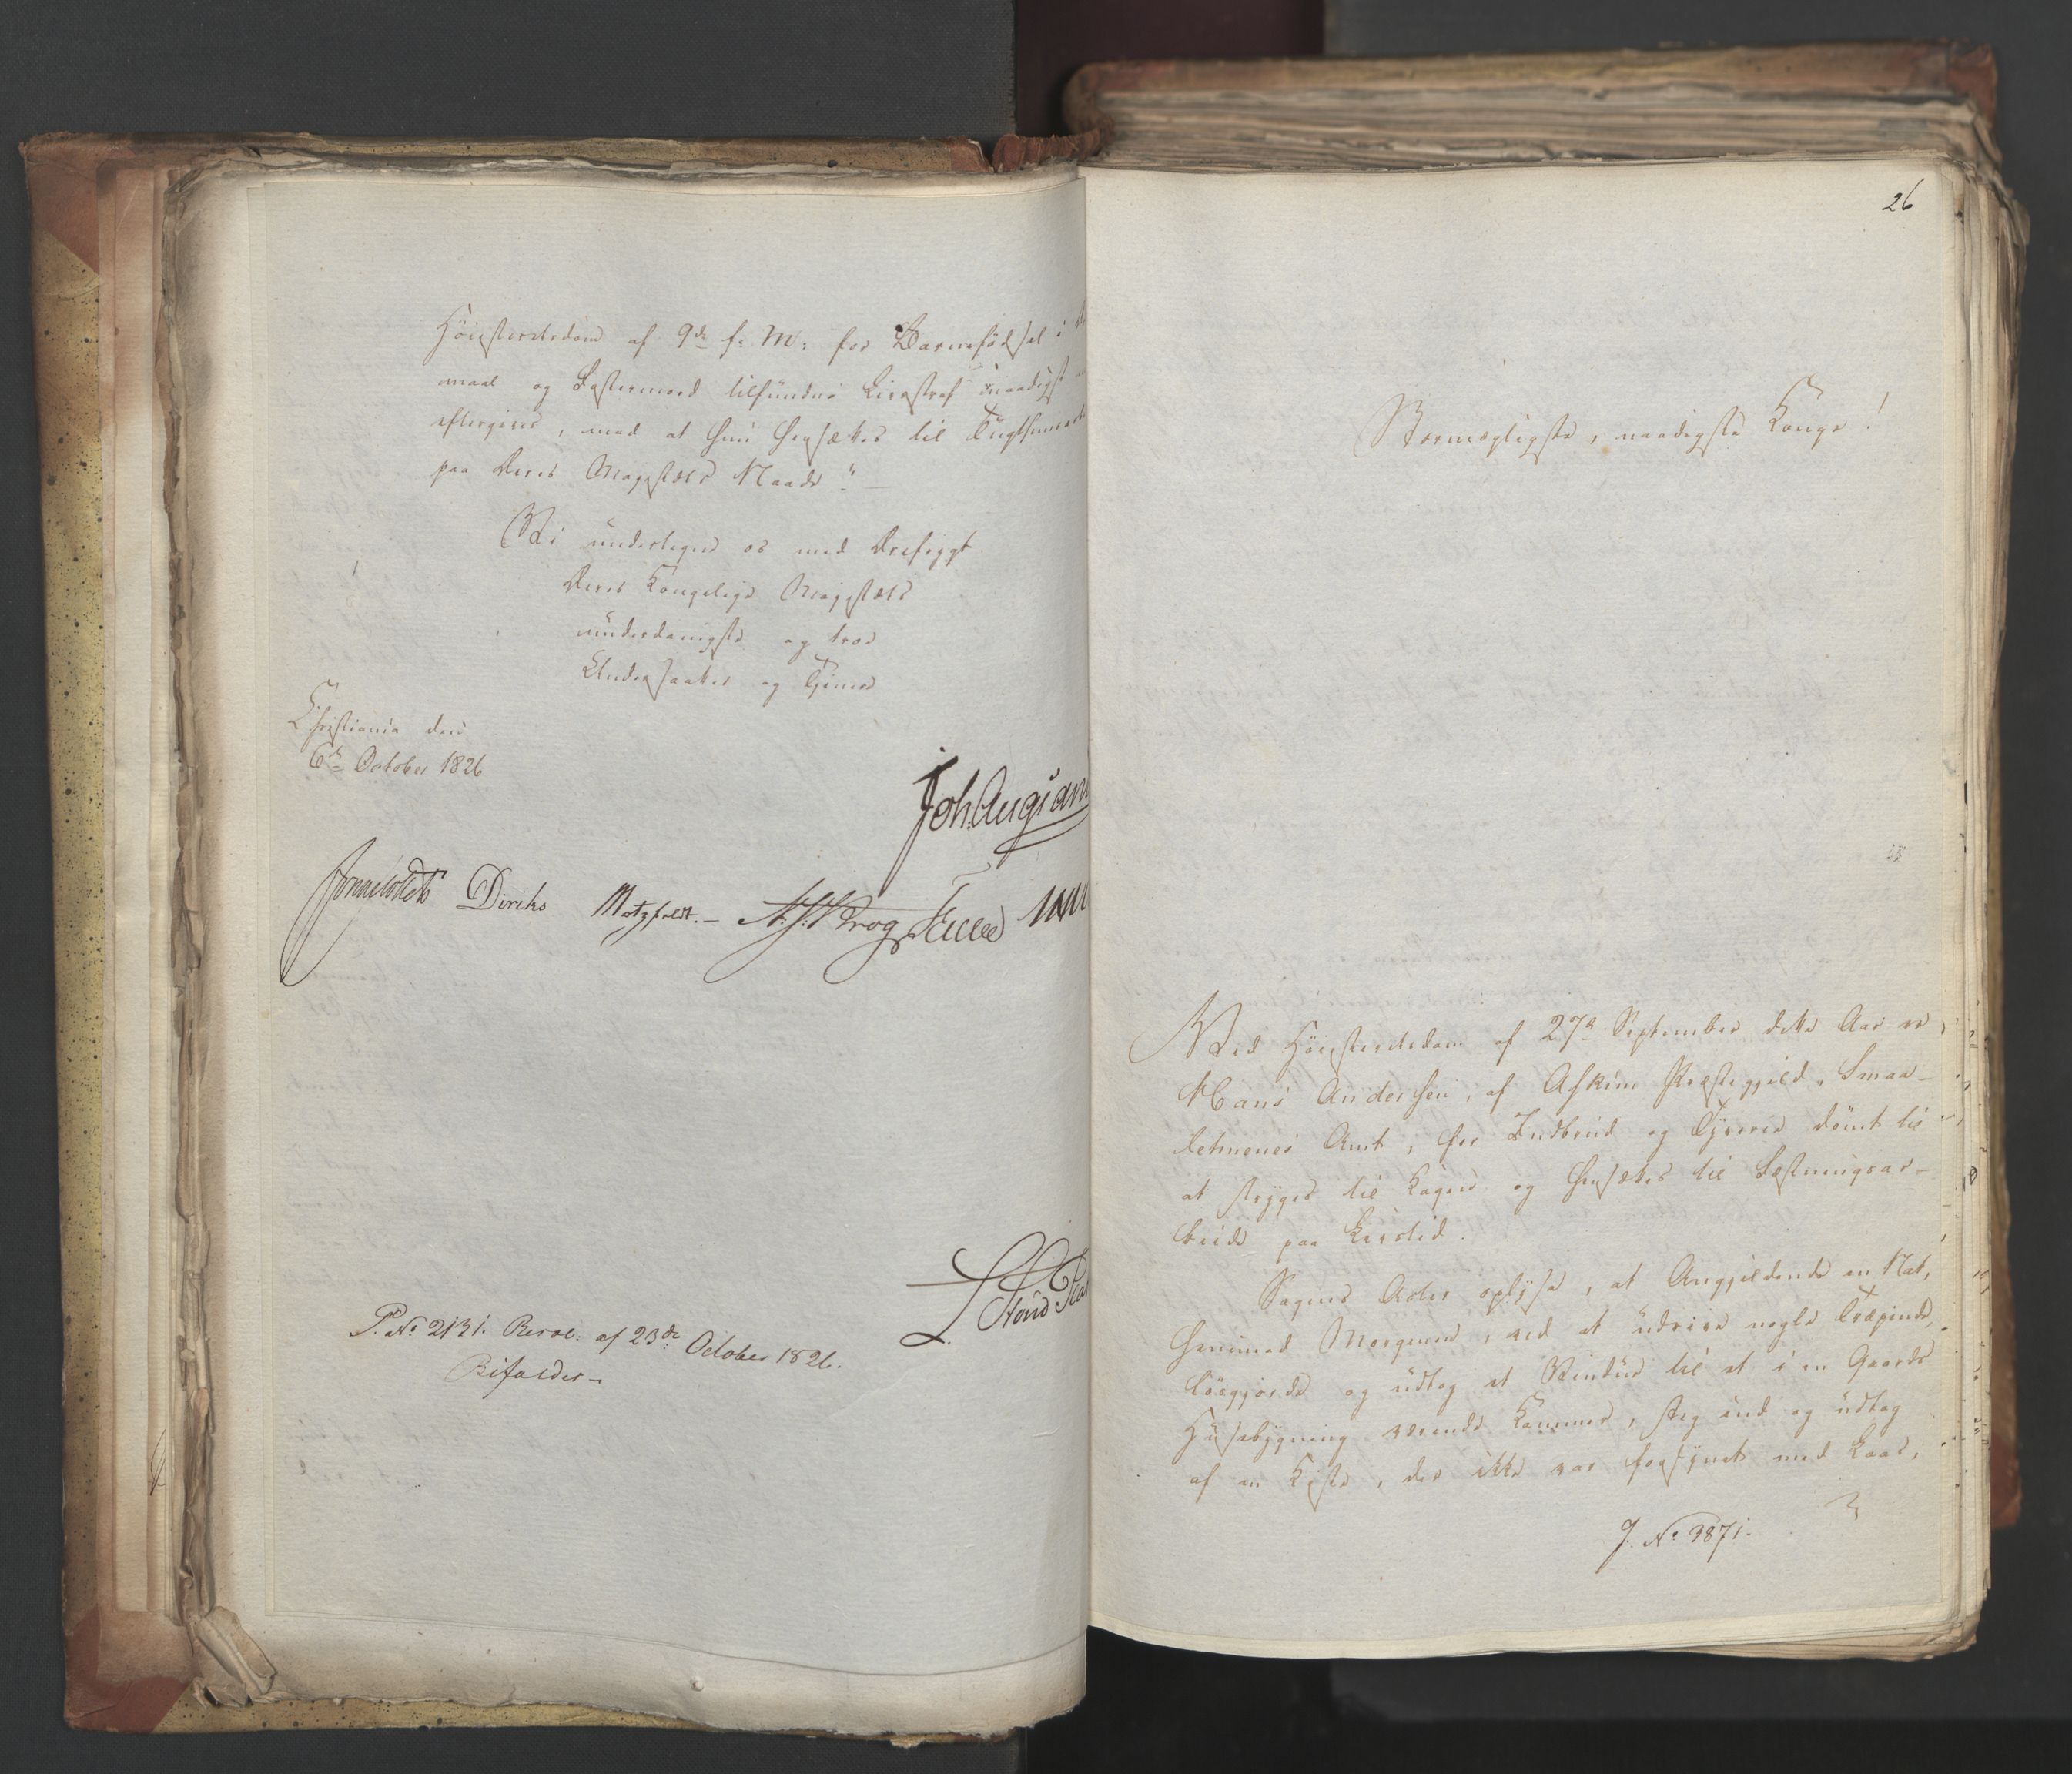 Høiesteretsdom af 9de f: M: for Barnefødsel i
maal og Fostermord tilfundne Livsstraf naadigst
eftergives, mod at hun hensættes til Tugthuusarbeide
paa Deres Majestæts Naade". —
Vi undertegne os med Drefrygt
Deres Kongelige Majestæts
underdanigste og troe
Undersaatter og Tjenere
Christiania den
6te October 1826
Joh. Aug: Sand
Sommerhielm Diriks Motzfeldt. — A. S. Krog
L. Stoud Plat
P. No 2131. Resol: af 23de October 1826.
Bifaldes —
26
Stormægtigste, naadigste Konge!
Ved Høiesteretsdom af 27de September dette Aar er
Hans Andersen, af Askim Præstegjeld, Smaa-
lehnenes Amt, for Indbrud og Tyverie dømt til
at stryges til Kagen og hensættes til Fæstningsar-
beide paa Livstid.
Sagens Acter oplyse, at Angjeldende en Nat,
henimod Morgenen, ved at udrive nogle Træpinde,
løsgjorde og udtog et Vindue til et i en Gaards
Huusebygning værende Kammer, steg ind og udtog
af en Kiste, der ikke var forsynet med Laas,
J. No 3871.